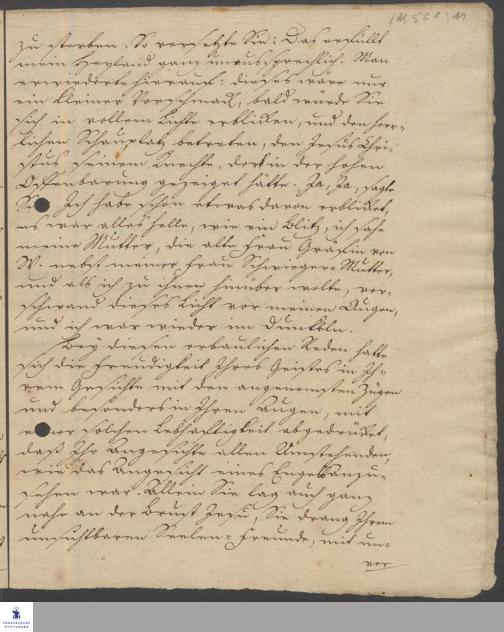 zu sterben. So versetzte Sie: Das erfüllt
mein Heyland ganz unaussprechlich. Man
erwiederte hierauf: dieses wäre nur
ein kleiner Vorschmack, bald würde Sie
sich in vollem Lichte erblicken, und den herr-
lichen Schauplatz betreten, den Jesus Chri-
stus seinem Knechte, dort in der hohen
Offenbarung gezeiget hätte. Ja, Ja, sagte
Sie ich habe schon etwas davon erblicket,
es war alles helle, wie ein Blitz, ich sahe
meine Mutter, die alte Frau Gräfin von
W. nebst meiner Frau Schwieger-Mutter,
und als ich zu ihnen hinüber wolte, ver-
schwand dieses Licht vor meinen Augen,
und ich war wieder im Dunkeln.
Bey diesen erbaulichen Reden hatte
sich die Freudigkeit Ihres Geistes in Ih-
rem Gesichte mit den angenemsten Zügen
und besonders in Ihren Augen, mit
einer solchen Lebhaftigkeit abgedrücket,
daß Ihr Angesichte allen Umstehenden,
wie das Angesicht eines Engels anzu-
sehen war. Allein Sie lag auch ganz
nahe an der Brust Jesu, Sie drang Ihrem
unsichtbaren Seelen-Freunde, mit un-
ver
FRANCKESCHE
STIFTUNGEN